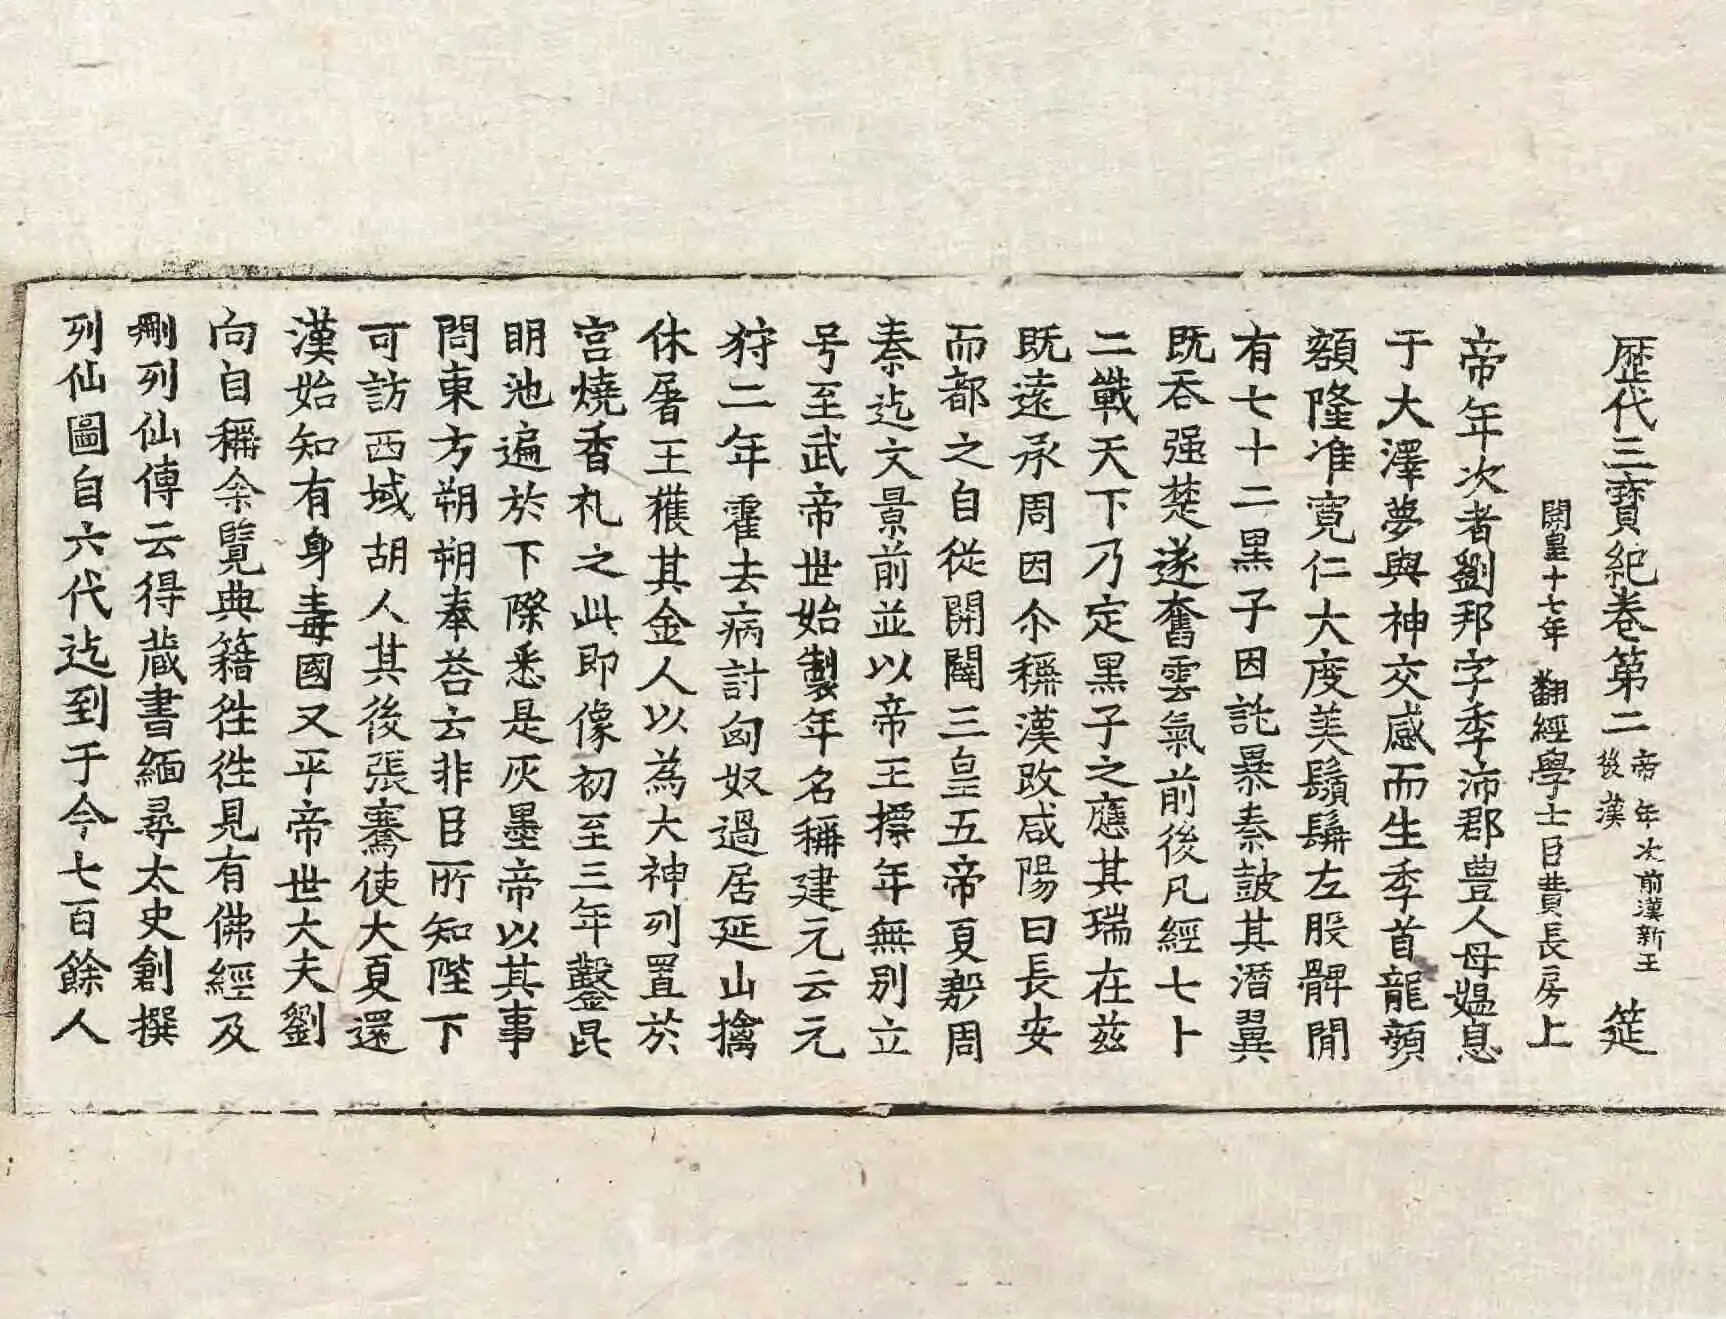 歷代三寶紀卷第二 帝年次前漢新王後漢 筵
開皇十七年翻經學士臣費長房上
帝年次者劉邦字季沛郡豊人母媪息
于大澤夢與神交感而生季首龍顏
額隆准寛仁大度美鬚髯左股髀閒
有七十二黒子因託暴秦皷其潛翼
既吞强楚遂奮雲氣前後凡經七十
二戰天下乃定黒子之應其瑞在茲
既遠承周因尒稱漢改咸陽曰長安
而都之自從開闢三皇五帝夏殷周
秦迄文景前並以帝王摽年無別立
号至武帝世始製年名稱建元云元
狩二年霍去病討匈奴過居延山擒
休屠王獲其金人以為大神列置於
宮燒香礼之此即像初至三年鑿昆
明池遍於下際悉是灰墨帝以其事
問東方朔朔奉荅云非臣所知陛下
可訪西域胡人其後張騫使大夏還
漢始知有身毒國又平帝世大夫劉
向自稱余覽典籍往往見有佛經及
刪列仙傳云得蔵書緬尋太史創撰
列仙圖自六代迄到于今七百餘人